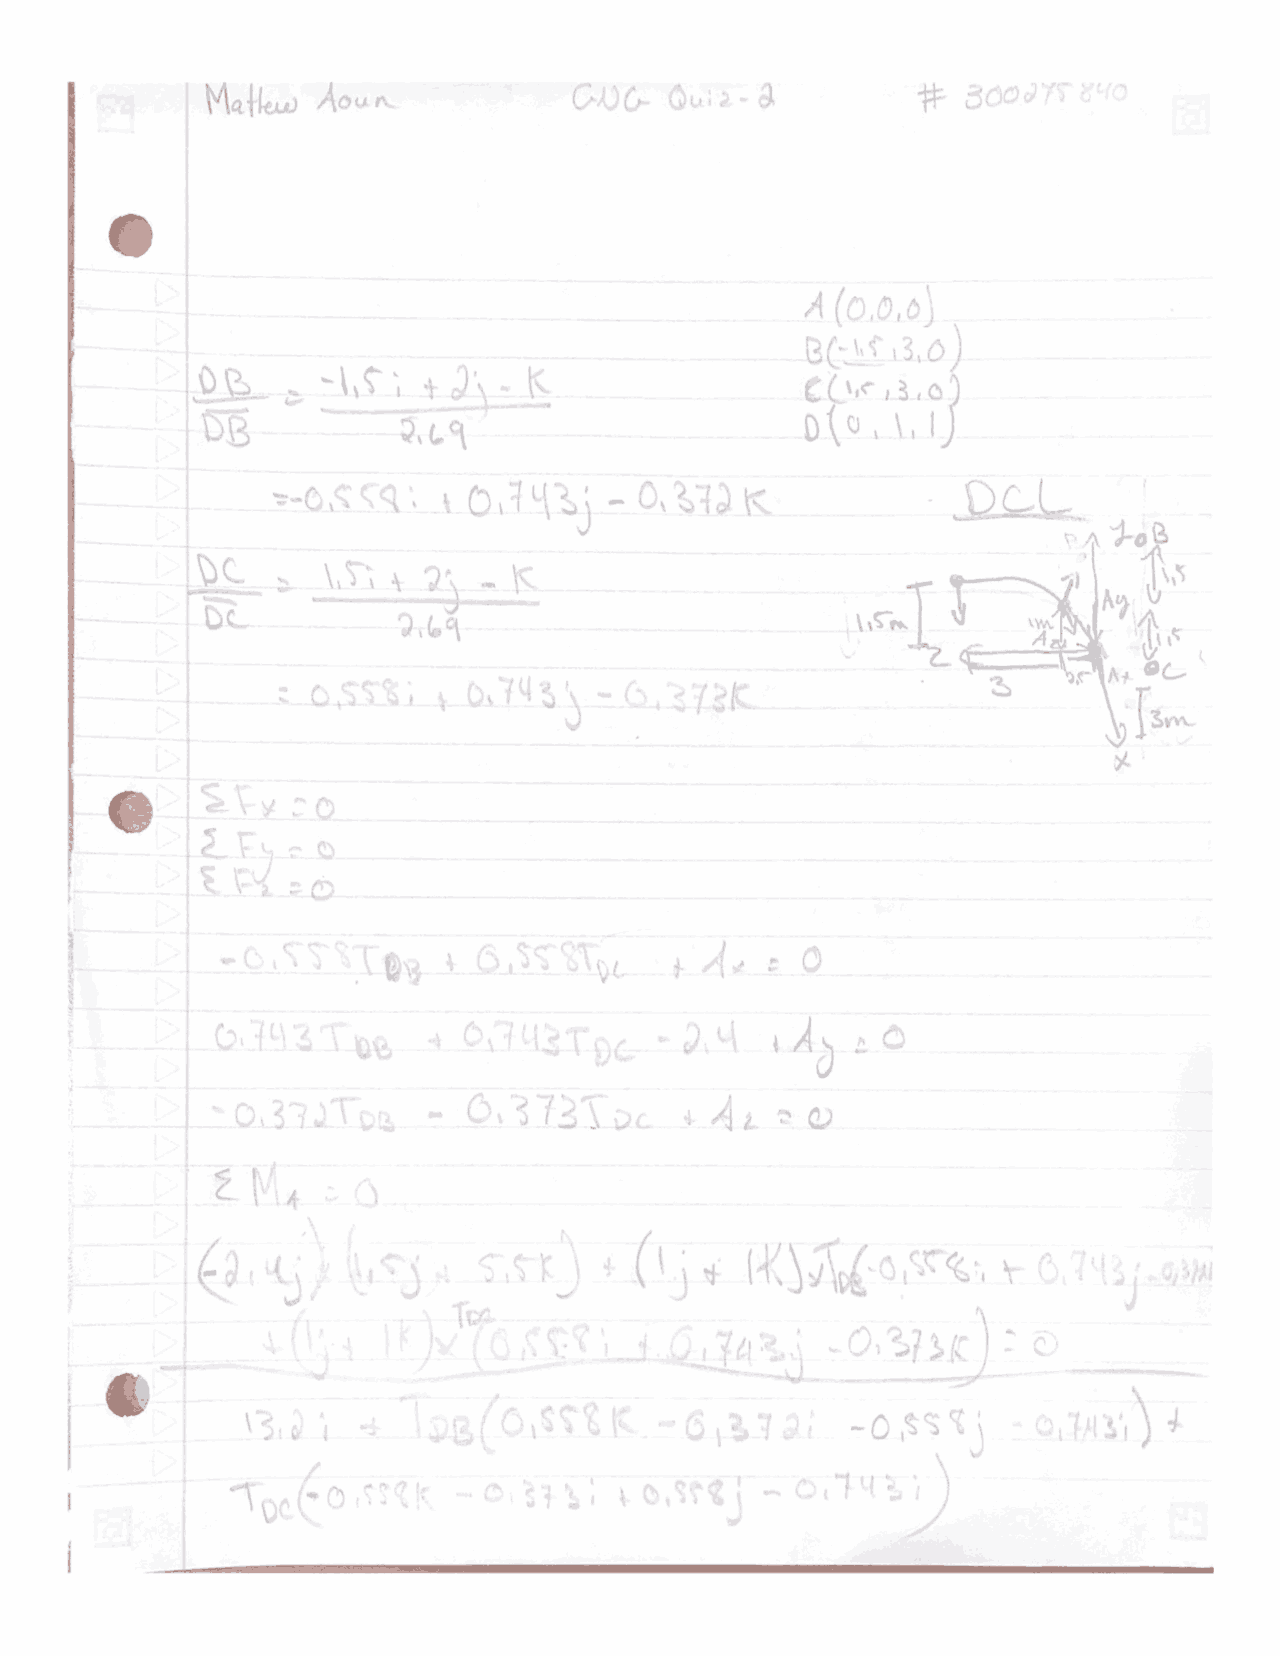 Mathew Aoun GNG Quiz-2 # 300275840
A(0,0,0)
B(-1,5,3,0)
C(1,5,3,0)
D(0,1,1)
DB/DB = (-1,5i + 2j - K)/2,69
=-0,558i + 0,743j - 0,372K
DC/DC = (1,5i + 2j - K)/2,69
= 0,558i + 0,743j - 0,373K
DCL
B
1,5
Ay
1,5m
1m
Az
1,5
Z
3
2,5
Ax
C
3m
X
ΣFx = 0
ΣFy = 0
ΣFz = 0
-0,558TDB + 0,558TDC + Ax = 0
0,743TDB + 0,743TDC - 2,4 + Ay = 0
-0,372TDB - 0,373TDC + Az = 0
ΣMA = 0
(-2,4j) x (1,5j + 5,5K) + (1j + 1K) x TDB(-0,558i + 0,743j -0,372K
+ (1j + 1K) x TDC (0,558i + 0,743j - 0,373K) = 0
13,2i + TDB(0,558K - 0,372i - 0,558j - 0,743i) +
TDC(-0,558K - 0,373i + 0,558j - 0,743i)